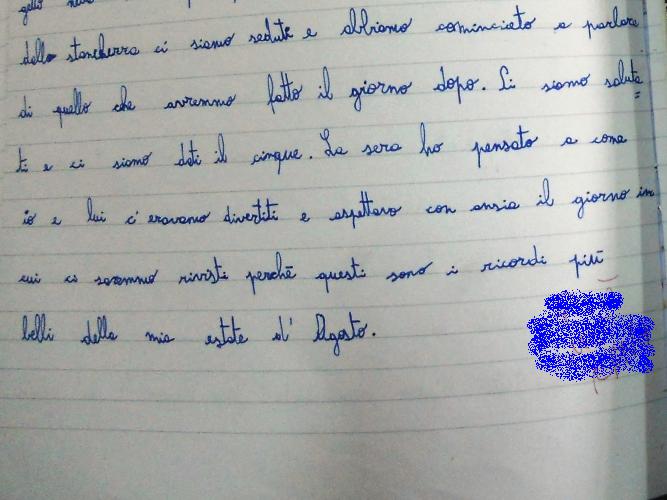 dalla stanchezza ci siamo seduti e abbiamo cominciato a parlare
di quello che avremmo fatto il giorno dopo. Ci siamo saluta=
ti e ci siamo dati il cinque. La sera ho pensato a come
io e lui c'eravamo divertiti e aspettavo con ansia il giorno in
cui ci saremmo rivisti perchē questi sono i ricordi piū
belli della mia estate d'Agosto.